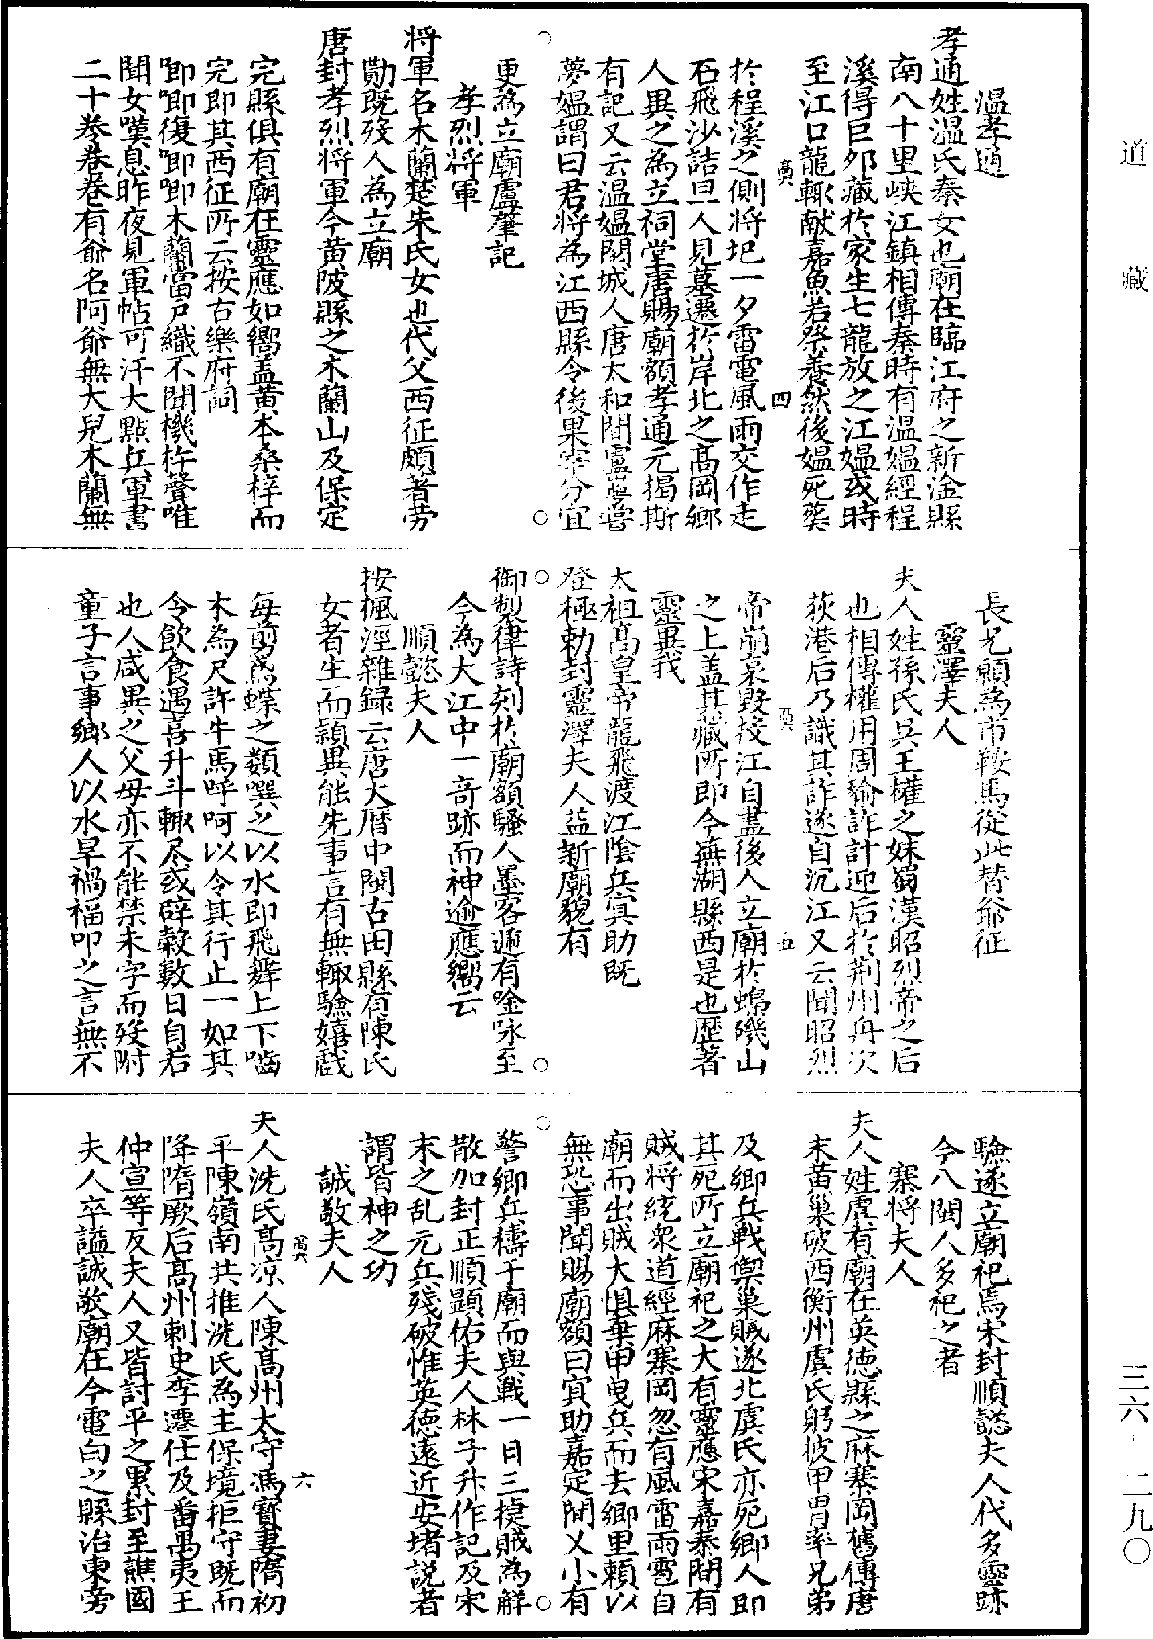 道藏
三六・二九〇
溫孝通
孝通姓溫氏秦女也廟在臨江府之新淦縣
南八十里峽江鎮相傳秦時有溫媼經程
溪得巨卵藏於家生七龍放之江媼或時
至江口龍輒獻嘉魚若祭養然後媼死葬
四
於程溪之側將圮一夕雷電風雨交作走
石飛沙詰旦人見墓遷於岸北之高岡鄉
人異之為立祠堂唐賜廟額孝通元揭斯
有記又云溫媼閬城人唐太和間盧萼嘗
夢媼謂曰君將為江西縣令後果宰分宜
更為立廟盧肇記
孝烈將軍
將軍名木蘭楚朱氏女也代父西征頗著勞
勩既歿人為立廟
唐封孝烈將軍今黃陂縣之木蘭山及保定
完縣俱有廟在靈應如嚮盖黃本桑梓而
完即其西征所云按古樂府詞
唧唧復唧唧木蘭當戶織不聞機杼聲唯
聞女嘆息昨夜見軍帖可汗大點兵軍書
二十卷卷卷有爺名阿爺無大兒木蘭無
長兄願為市鞍馬從此替爺征
靈澤夫人
夫人姓孫氏吳王權之妹蜀漢昭烈帝之后
也相傳權用周瑜詐計迎后於荆州舟次
荻港后乃識其詐遂自沉江又云聞昭烈
五
帝崩哀毀投江自盡後人立廟於蟂磯山
之上盖其藏所即今蕪湖縣西是也歷著
靈異我
太祖高皇帝龍飛渡江陰兵寘助既
登極勅封靈澤夫人益新廟貌有
御製律詩刻於廟額騷人墨客遞有唫咏至
今為大江中一奇跡而神逾應嚮云
順懿夫人
按楓涇雜録云唐大曆中閩古田縣有陳氏
女者生而穎異能先事言有無輒驗嬉戲
每剪鳶蝶之類噀之以水即飛舞上下嚙
木為尺許牛馬呼呵以令其行止一如其
令飲食遇喜升斗輒尽或辟穀數日自若
也人咸異之父母亦不能禁未字而歿附
童子言事鄉人以水旱禍福叩之言無不
驗遂立廟祀焉宋封順懿夫人代多靈跡
今八閩人多祀之者
寨將夫人
夫人姓虞有廟在英德縣之麻寨岡舊傳唐
末黃巢破西衡州虞氏躬披甲冑率兄弟
及鄉兵戰禦巢賊遂北虞氏亦死鄉人即
其死所立廟祀之大有靈應宋嘉泰間有
賊將統衆道經麻寨岡忽有風雷雨雹自
廟而出賊大惧棄甲曳兵而去鄉里頼以
無恐事聞賜廟額曰寘助嘉定間乂小有
警鄉兵禱于廟而與戰一日三捷賊為觧
散加封正順顯佑夫人林子升作記及宋
末之乱元兵殘破惟英德遠近安堵説者
謂皆神之功
誠敬夫人
六
夫人洗氏高凉人陳高州太守馮寶妻隋初
平陳嶺南共推洗氏為主保境拒守既而
降隋厥后髙州刺史李遷仕及番禺夷王
仲宣等反夫人又皆討平之累封至譙國
夫人卒謚誠敬廟在今電白之縣治東旁